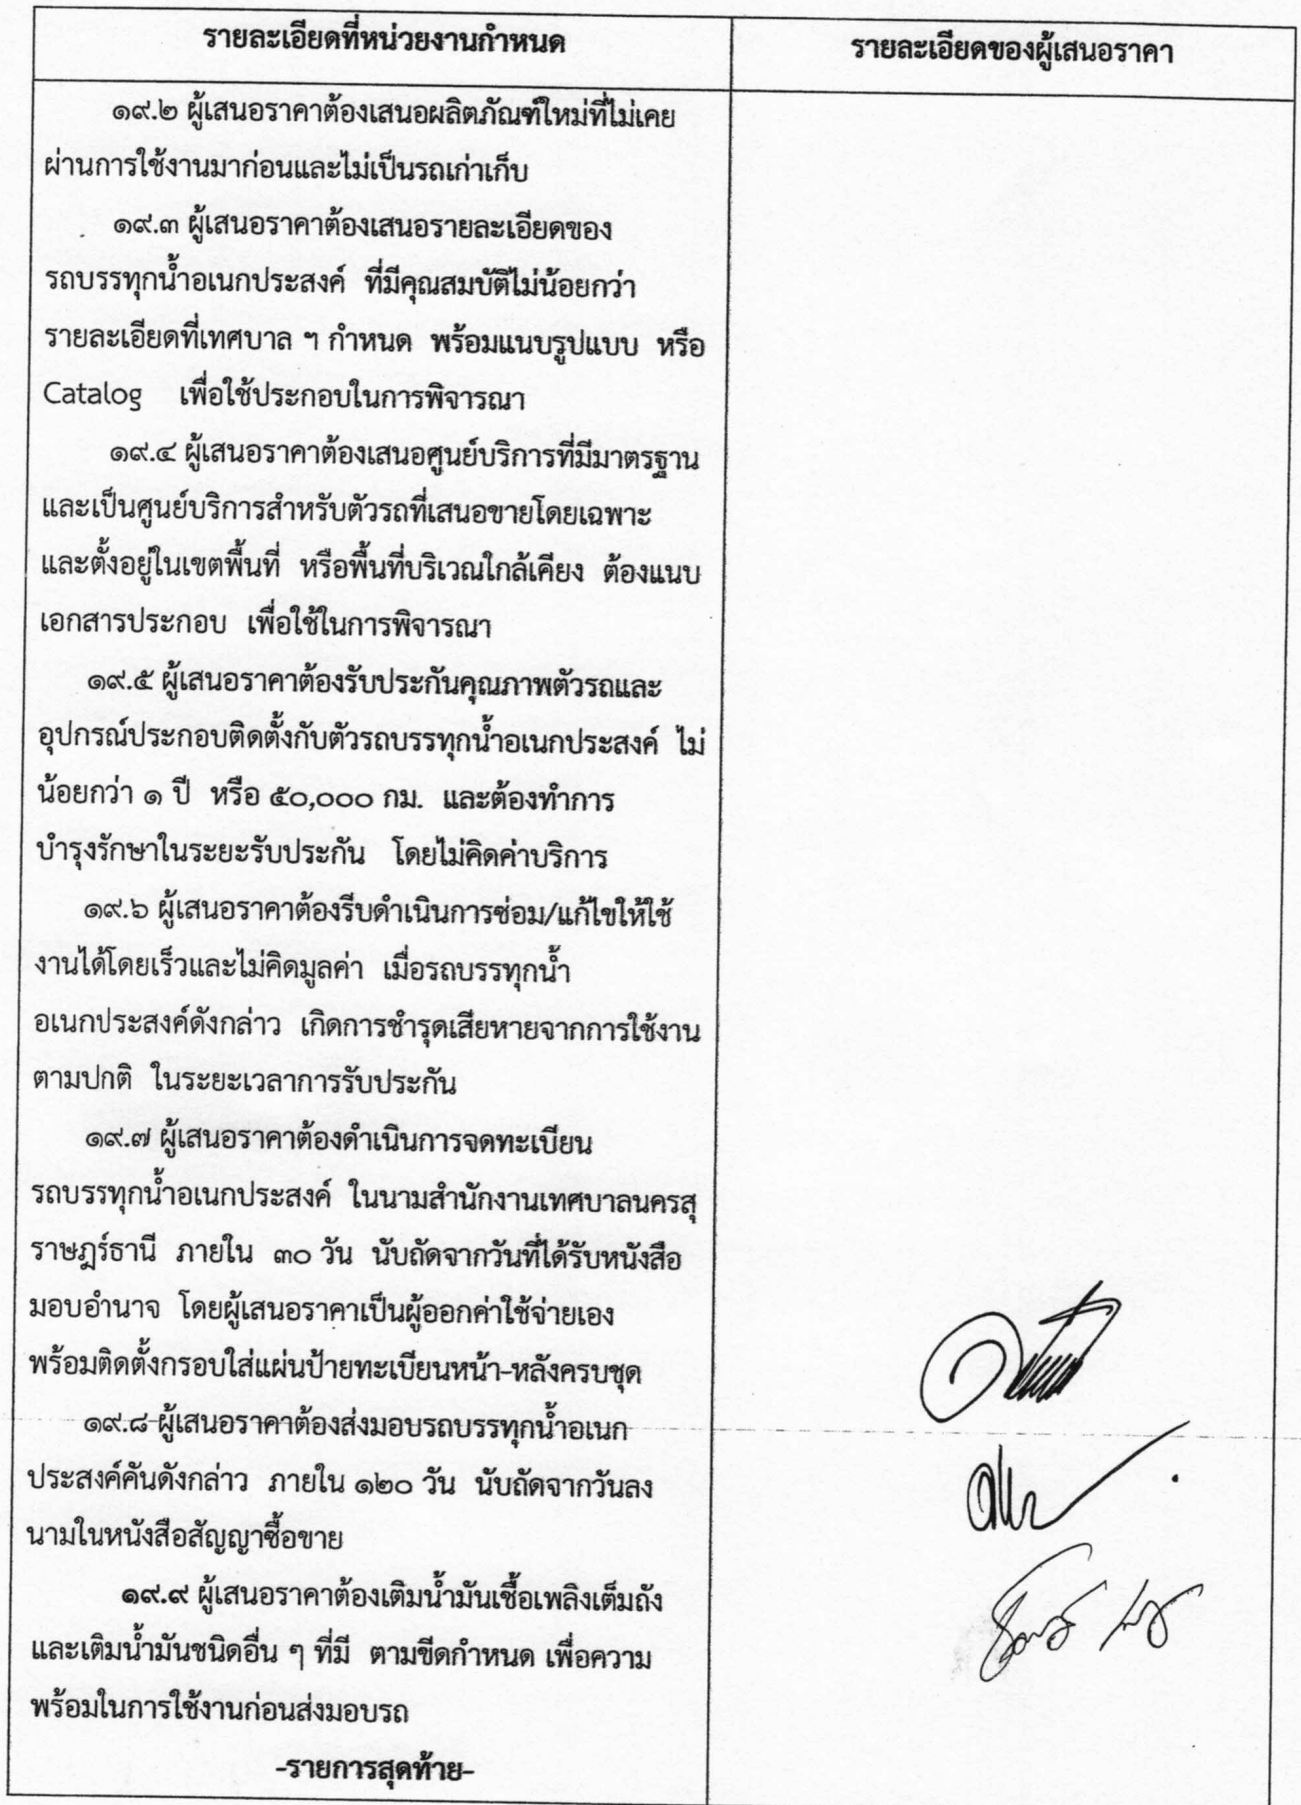 รายละเอียดที่หน่วยงานกำหนด
รายละเอียดของผู้เสนอราคา
๑๙.๒ ผู้เสนอราคาต้องเสนอผลิตภัณฑ์ใหม่ที่ไม่เคย
ผ่านการใช้งานมาก่อนและไม่เป็นรถเก่าเก็บ
๑๙.๓ ผู้เสนอราคาต้องเสนอรายละเอียดของ
รถบรรทุกน้ำอเนกประสงค์ ที่มีคุณสมบัติไม่น้อยกว่า
รายละเอียดที่เทศบาล ฯ กำหนด พร้อมแนบรูปแบบ หรือ
Catalog เพื่อใช้ประกอบในการพิจารณา
๑๙.๔ ผู้เสนอราคาต้องเสนอศูนย์บริการที่มีมาตรฐาน
และเป็นศูนย์บริการสำหรับตัวรถที่เสนอขายโดยเฉพาะ
และตั้งอยู่ในเขตพื้นที่ หรือพื้นที่บริเวณใกล้เคียง ต้องแนบ
เอกสารประกอบ เพื่อใช้ในการพิจารณา
๑๙.๕ ผู้เสนอราคาต้องรับประกันคุณภาพตัวรถและ
อุปกรณ์ประกอบติดตั้งกับตัวรถบรรทุกน้ำอเนกประสงค์ ไม่
น้อยกว่า ๑ ปี หรือ ๕๐,๐๐๐ กม. และต้องทำการ
บำรุงรักษาในระยะรับประกัน โดยไม่คิดค่าบริการ
๑๙.๖ ผู้เสนอราคาต้องรีบดำเนินการซ่อม/แก้ไขให้ใช้
งานได้โดยเร็วและไม่คิดมูลค่า เมื่อรถบรรทุกน้ำ
อเนกประสงค์ดังกล่าว เกิดการชำรุดเสียหายจากการใช้งาน
ตามปกติ ในระยะเวลาการรับประกัน
๑๙.๗ ผู้เสนอราคาต้องดำเนินการจดทะเบียน
รถบรรทุกน้ำอเนกประสงค์ ในนามสำนักงานเทศบาลนครสุ
ราษฎร์ธานี ภายใน ๓๐ วัน นับถัดจากวันที่ได้รับหนังสือ
มอบอำนาจ โดยผู้เสนอราคาเป็นผู้ออกค่าใช้จ่ายเอง
พร้อมติดตั้งกรอบใส่แผ่นป้ายทะเบียนหน้า-หลังครบชุด
๑๙.๘ ผู้เสนอราคาต้องส่งมอบรถบรรทุกน้ำอเนก
ประสงค์คันดังกล่าว ภายใน ๑๒๐ วัน นับถัดจากวันลง
นามในหนังสือสัญญาซื้อขาย
๑๙.๙ ผู้เสนอราคาต้องเติมน้ำมันเชื้อเพลิงเต็มถัง
และเติมน้ำมันชนิดอื่น ๆ ที่มี ตามขีดกำหนด เพื่อความ
พร้อมในการใช้งานก่อนส่งมอบรถ
-รายการสุดท้าย-